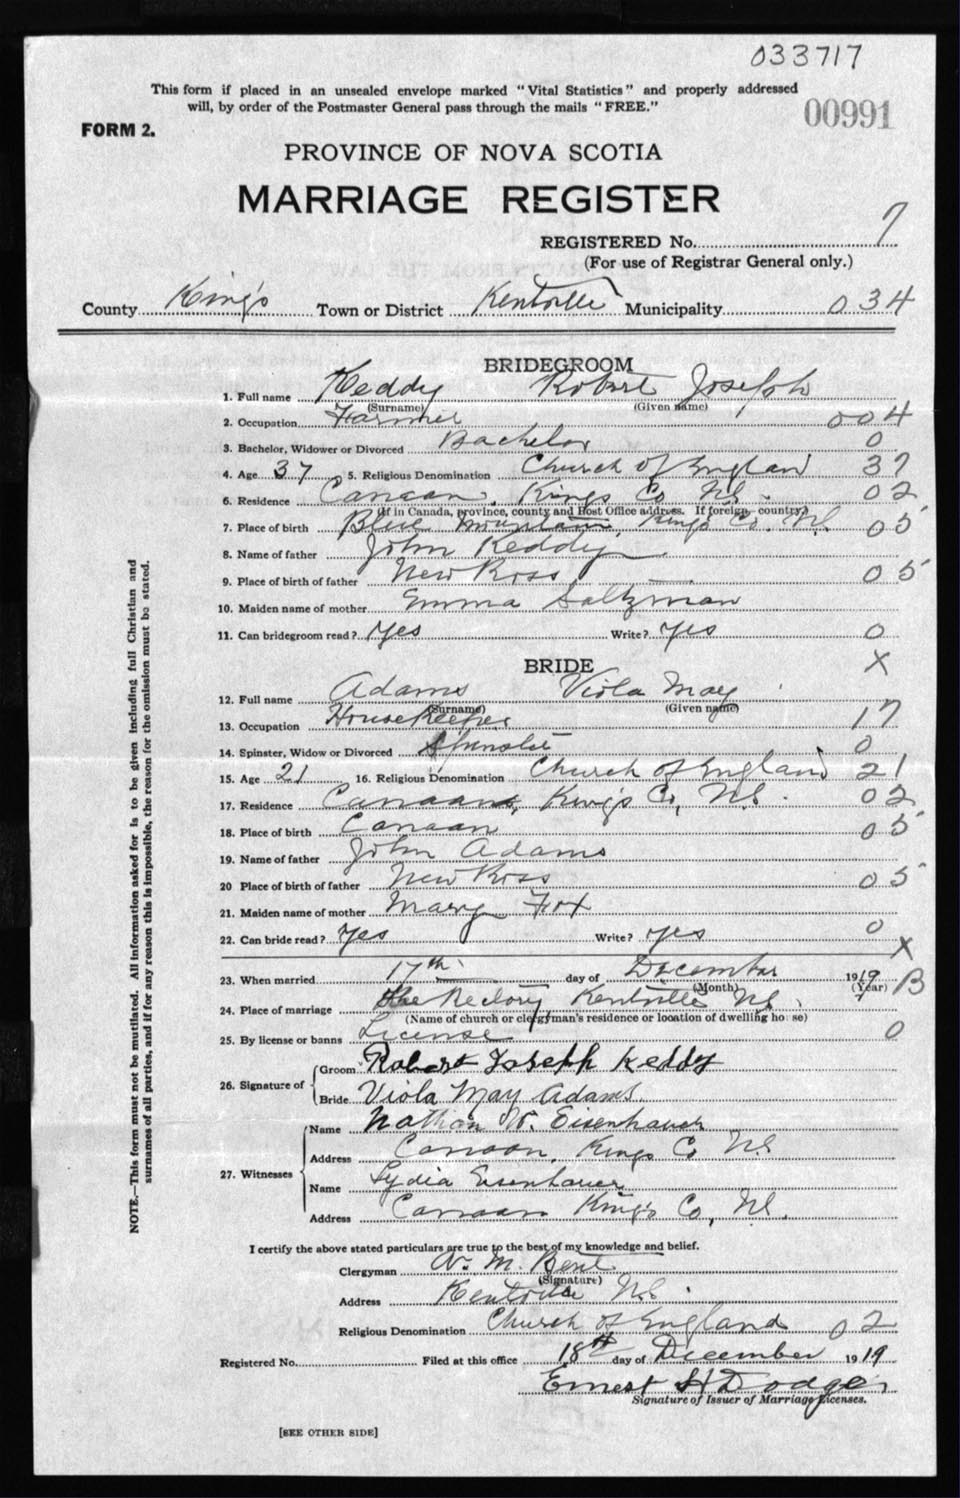 033717
This form if placed in an unsealed envelope marked "Vital Statistics" and properly addressed
will, by order of the Postmaster General pass through the mails "FREE."
00991
FORM 2.
PROVINCE OF NOVA SCOTIA
MARRIAGE REGISTER
REGISTERED No. 7
(For use of Registrar General only.)
County King's Town or District Kentville Municipality 034
BRIDEGROOM
1. Full name Keddy Robert Joseph
(Surname) (Given name)
2. Occupation Farmer 004
3. Bachelor, Widower or Divorced Bachelor 0
4. Age 37 5. Religious Denomination Church of England 37
6. Residence Canaan, Kings Co NS. 02
(If in Canada, province, county and Post Office address. If foreign, country)
7. Place of birth Blue Mountain, Kings Co. N.S. 05
8. Name of father John Keddy
9. Place of birth of father New Ross 05
10. Maiden name of mother Emma Saltzman
11. Can bridegroom read? Yes Write? Yes 0
BRIDE X
12. Full name Adams Viola May
(Surname) (Given name)
13. Occupation HouseKeeper 17
14. Spinster, Widow or Divorced Spinster 0
15. Age 21 16. Religious Denomination Church of England 21
17. Residence Canaan, King's Co, N.S. 02
18. Place of birth Canaan 05
19. Name of father John Adams
20 Place of birth of father New Ross 05
21. Maiden name of mother Mary Fox
22. Can bride read? Yes Write? Yes 0
X
23. When married 17th day of December 1919 B
(Month) (Year)
24. Place of marriage The Rectory Kentville NS.
(Name of church or clergyman's residence or location of dwelling house)
25. By license or banns License 0
26. Signature of Groom Robert Joseph Keddy
Bride Viola May Adams
27. Witnesses Name Nathan W. Eisenhauer
Address Canaan, Kings Co NS
Name Lydia Eisenhauer
Address Canaan King's Co, N.S.
I certify the above stated particulars are true to the best of my knowledge and belief.
Clergyman A. M. Bent
(Signature)
Address Kentville N.S.
Religious Denomination Church of England 02
Registered No. Filed at this office 18th day of December 1919
Ernest H Dodge
Signature of Issuer of Marriage Licenses.
[SEE OTHER SIDE]
NOTE.—This form must not be mutilated. All information asked for is to be given including full Christian and
surnames of all parties, and if for any reason this is impossible, the reason for the omission must be stated.